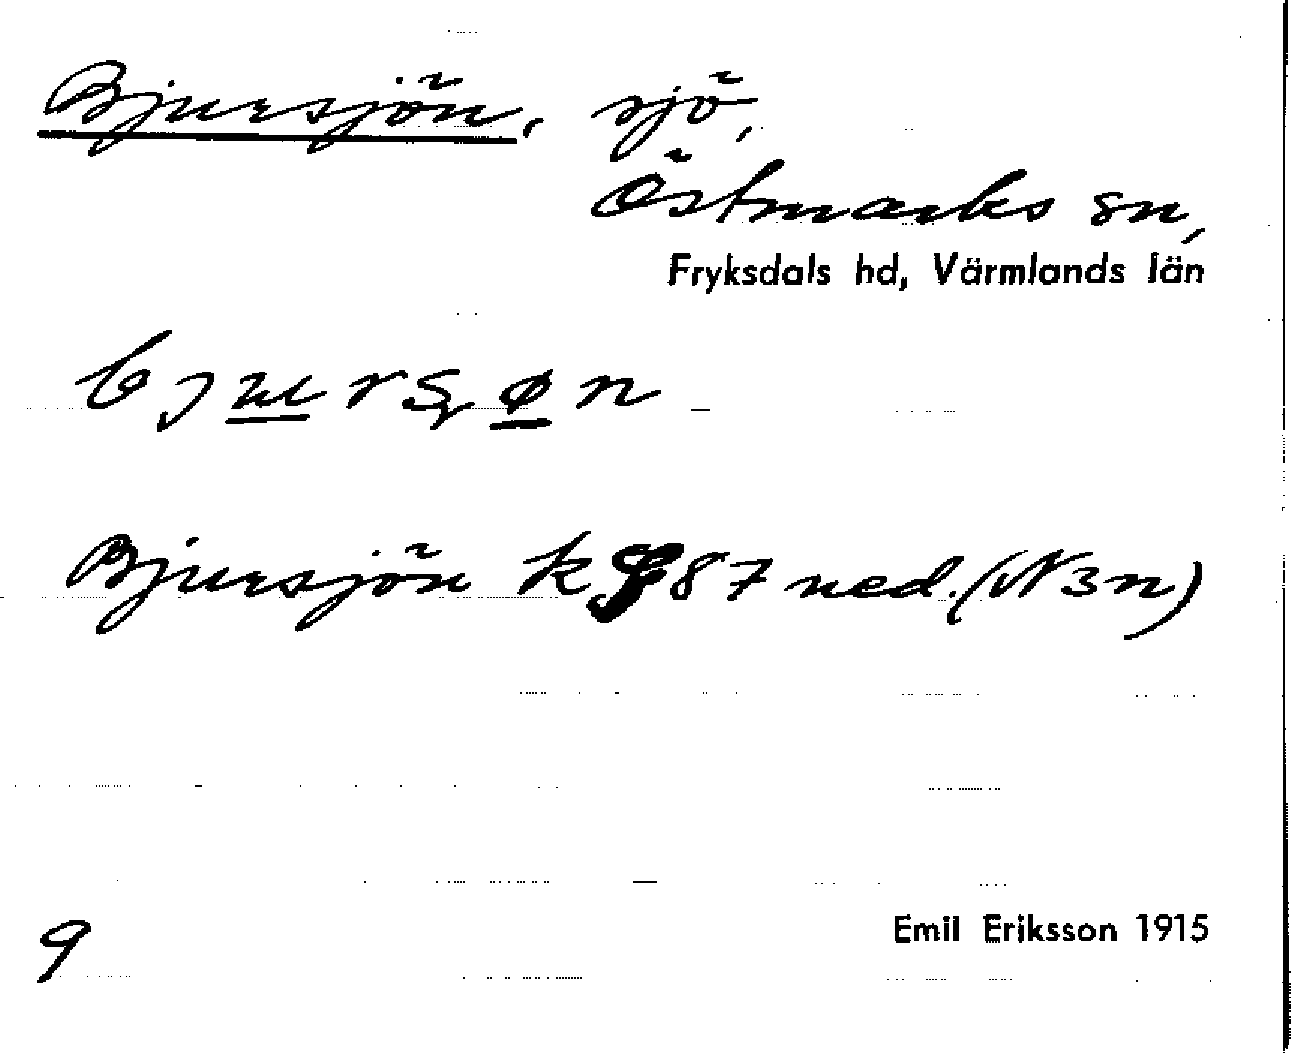 Bjursjön, sjö,
Östmarks sn,
Fryksdals hd, Värmlands län
Bjursjön k 87 ned. (N3n)
9
Emil Eriksson 1915